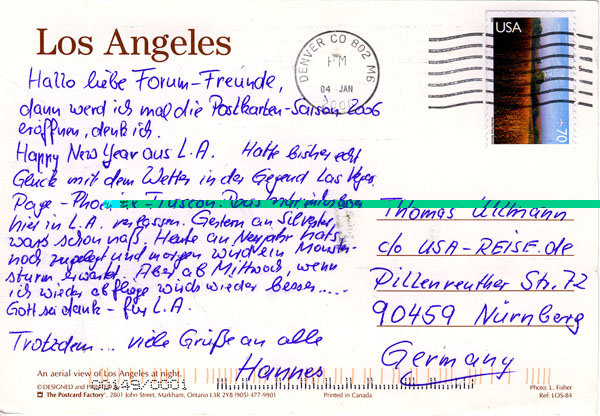 Los Angeles
DENVER CO 802 M6
PM
04 JAN
USA
70
Hallo liebe Forum-Freunde,
dann werd ich mal die Postkarten-Saison 2006
eröffnen, denk ich.
Happy New Year aus L.A. Hatte bisher echt
Glück mit dem Wetter in der Gegend Las Vegas.
Page - Phoenix - Tuscon. Das
hier in L.A. verlassen. Gestern an Silvester
wars schon naß, Heute an Neujahr hats
noch zugelegt und morgen wird ein Monster-
sturm erwartet. Aber ab Mittwoch, wenn
ich wieder abfliege wirds wieder besser.....
Gott sei dank - für L.A.
Trotzdem... viele Grüße an alle
Hannes
Thomas Ullmann
c/o USA-REISE.de
Pillenreuther Str. 72
90459 Nürnberg
Germany
An aerial view of Los Angeles at night.
© DESIGNED and PRINTED by
The Postcard Factory, 2801 John Street, Markham, Ontario L3R 2Y8 (905) 477-9901
Printed in Canada
Photo: L. Fisher
Ref: LOS-84